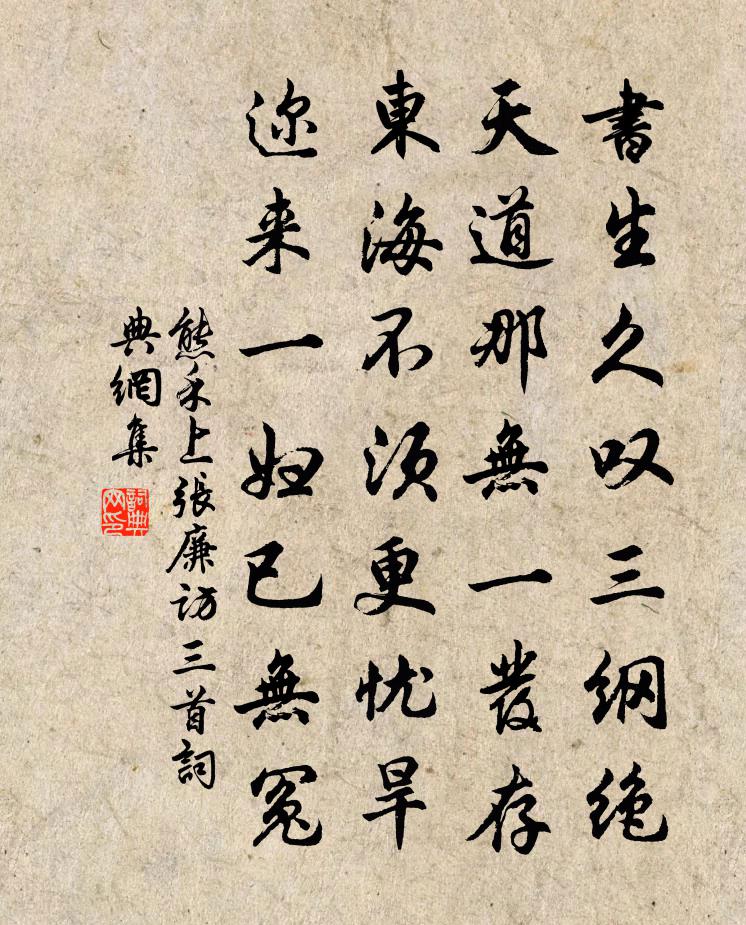 書生久叹三纲绝
天道那無一發存
東海不须更忧旱
迩来一妇已無冤
熊禾上張廉访三首詞
典網集
詞典
网印